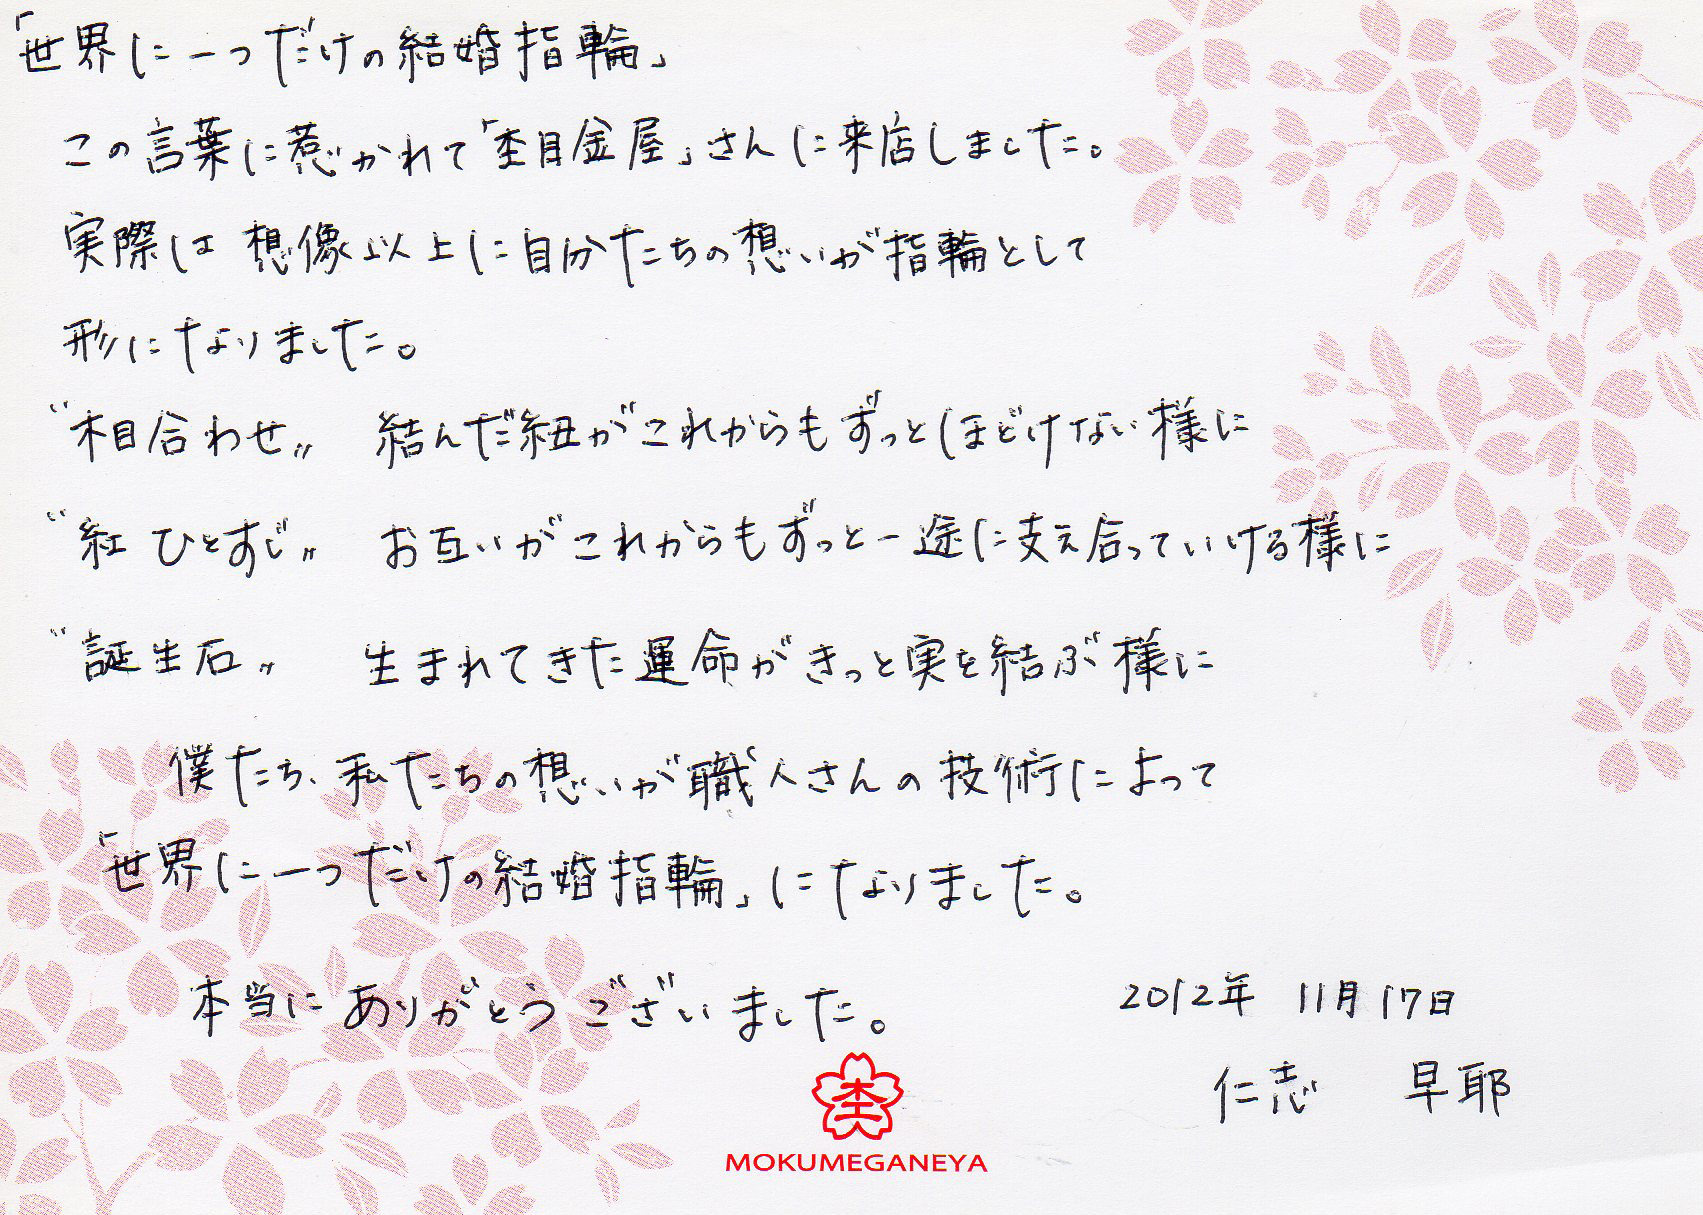 「世界に一つだけの結婚指輪」
この言葉に惹かれて「杢目金屋」さんに来店しました。
実際は 想像以上に自分たちの想いが指輪として
形になりました。
“木目合わせ” 結んだ紐がこれからもずっとほどけない様に
“紅 ひとすじ” お互いがこれからもずっと一途に支え合っていける様に
“誕生石” 生まれてきた運命がきっと実を結ぶ様に
僕たち、私たちの想いが職人さんの技術によって
「世界に一つだけの結婚指輪」になりました。
本当にありがとうございました。
2012年 11月17日
仁志 早耶
杢
MOKUMEGANEYA